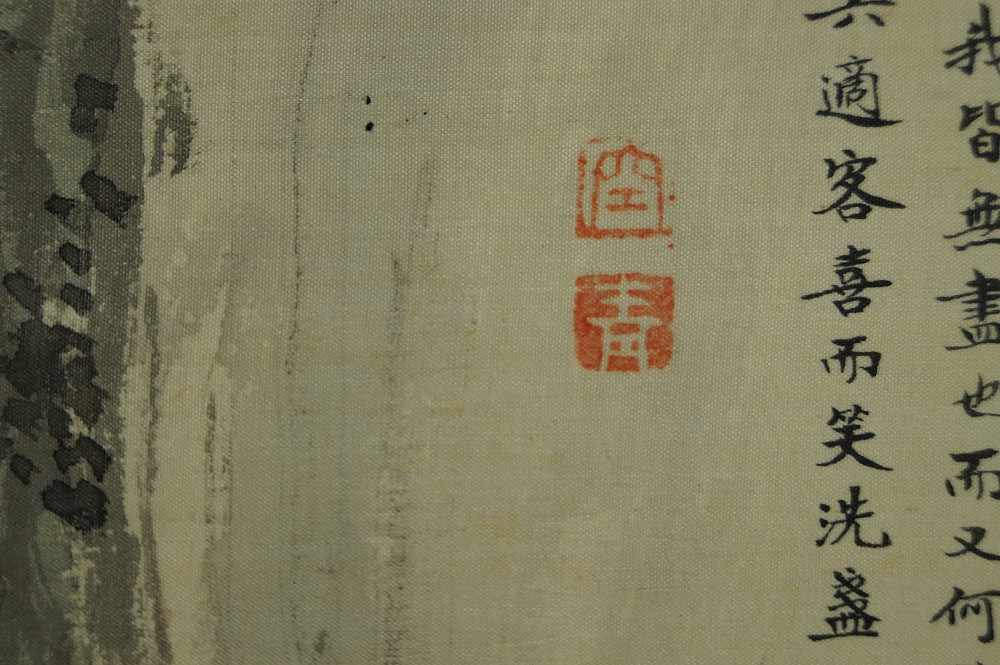 我皆無盡也而又何
共適客喜而笑洗盞